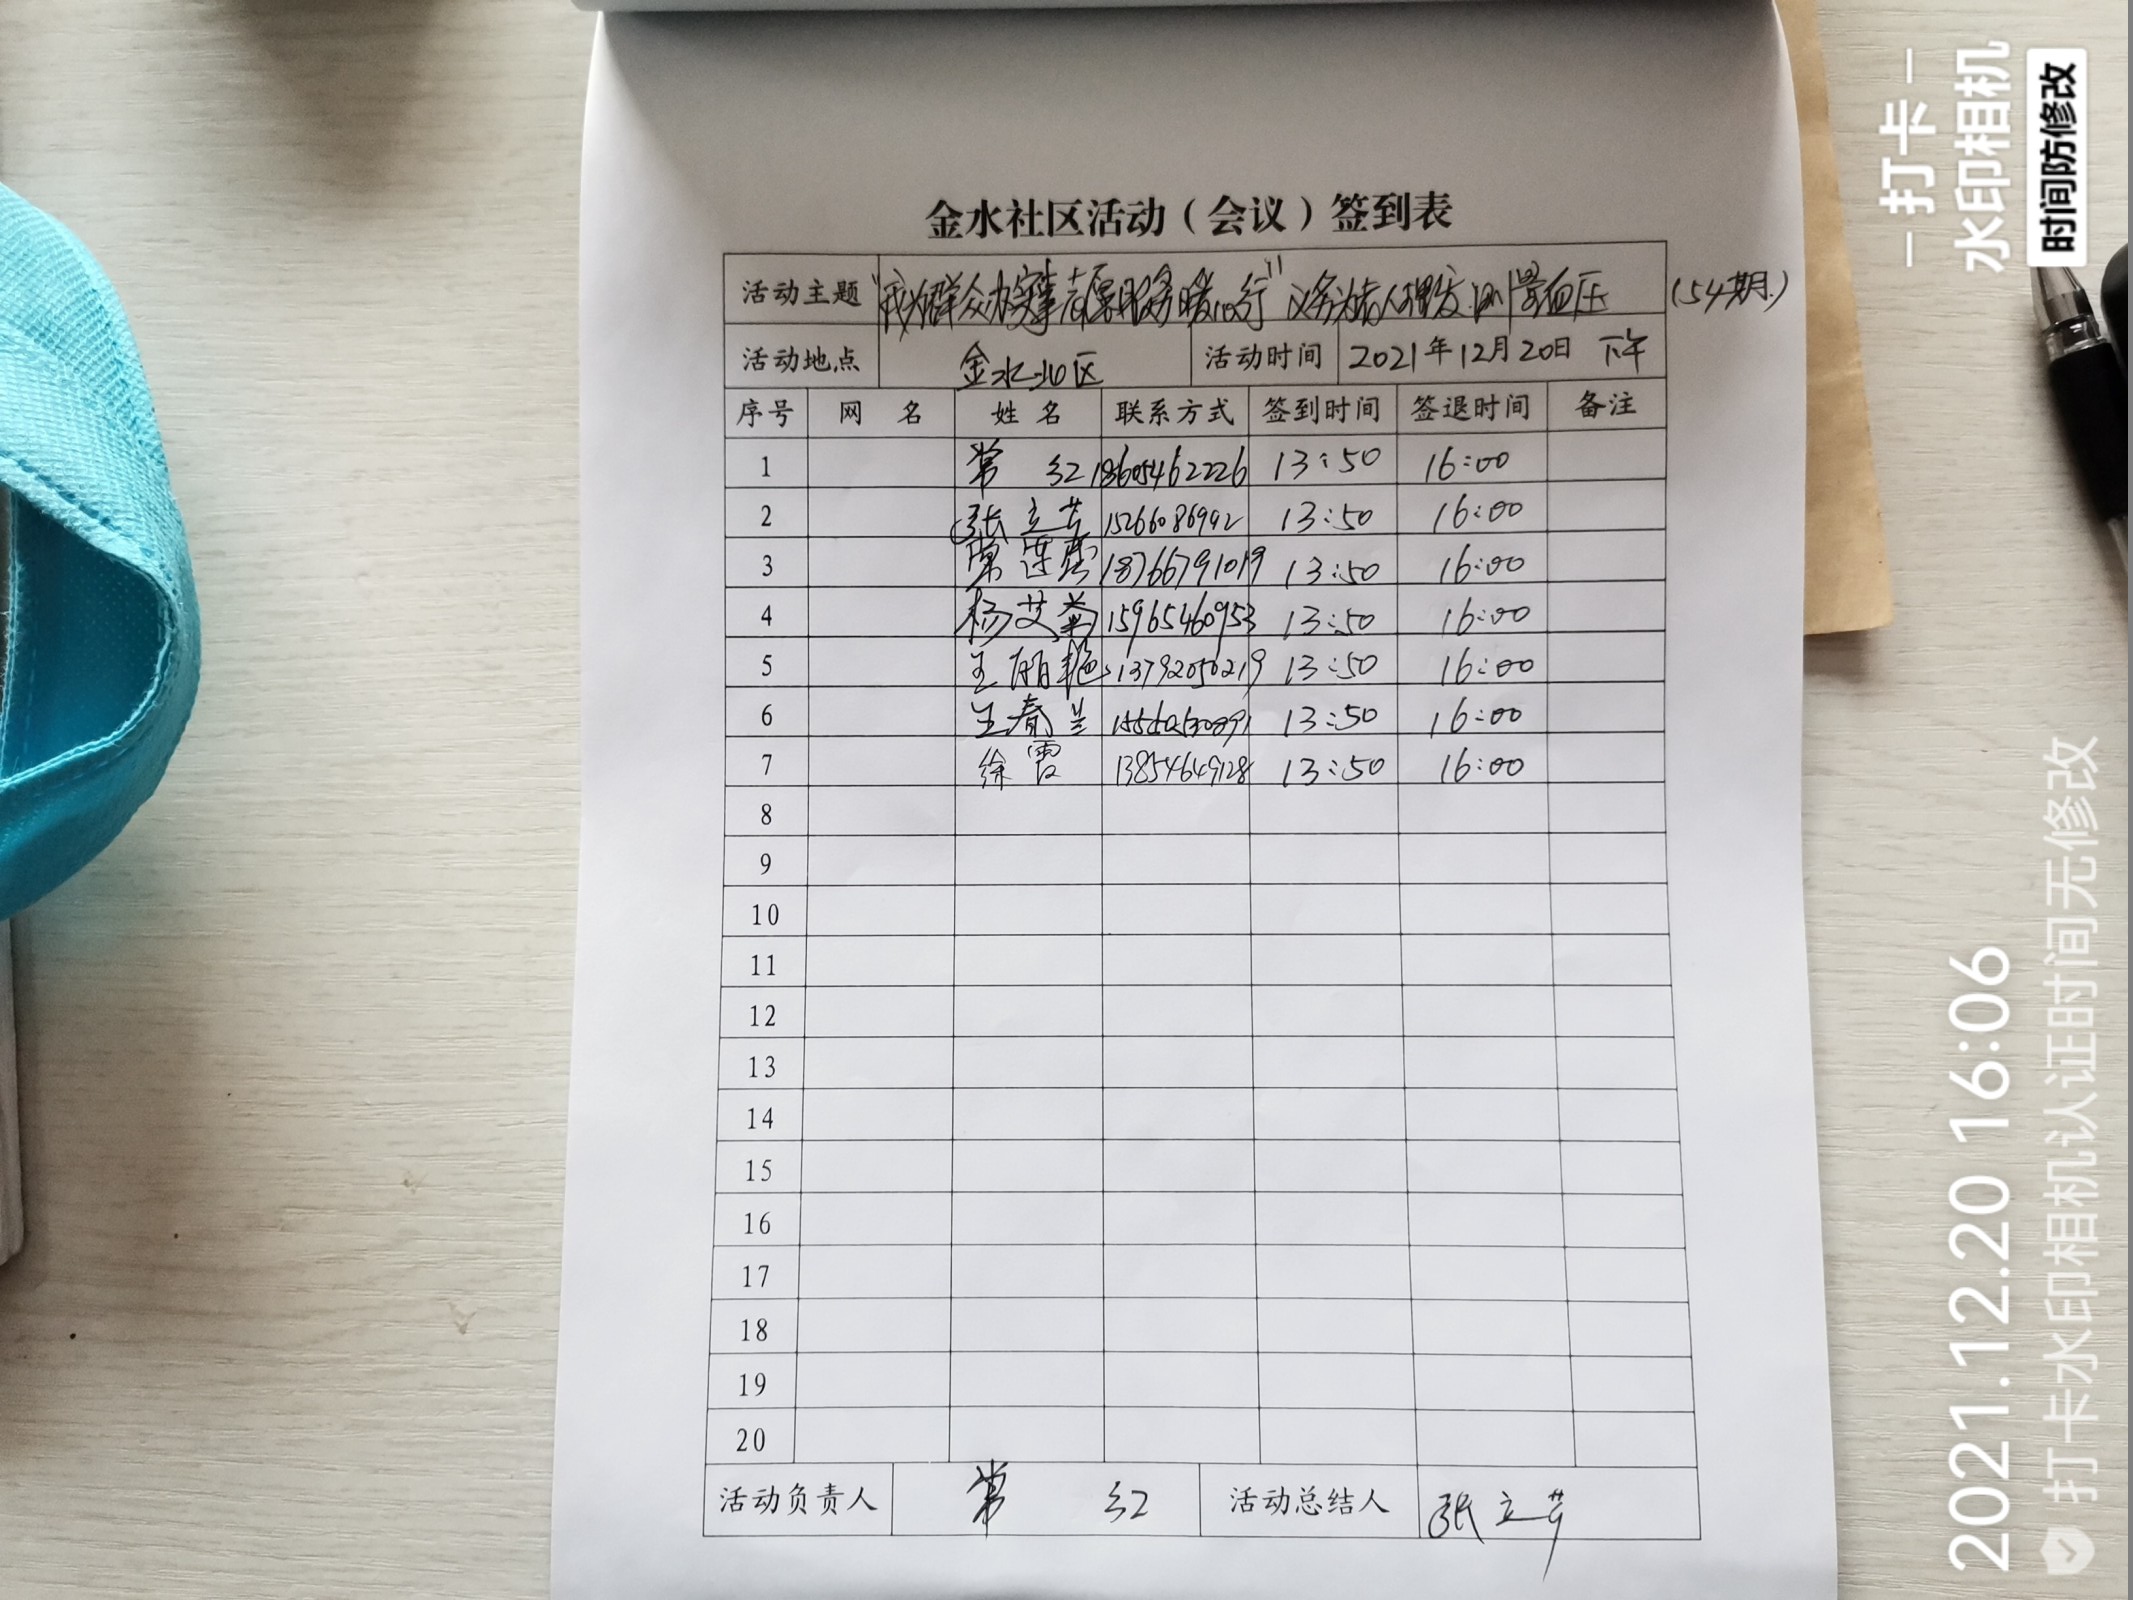 金水社区活动（会议）签到表
活动主题 "我为群众办实事志愿服务暖心行" 义务为老人理发、测量血压 （54期）
活动地点 金水社区 活动时间 2021年12月20日 下午
序号 网 名 姓 名 联系方式 签到时间 签退时间 备注
1 常 红 18605462226 13:50 16:00
2 张立芳 15266086992 13:50 16:00
3 常 18766791019 13:50 16:00
4 杨艾菊 15965460953 13:50 16:00
5 王丽艳 13792050219 13:50 16:00
6 王春兰 13:50 16:00
7 徐霞 13854649128 13:50 16:00
8
9
10
11
12
13
14
15
16
17
18
19
20
活动负责人 常 红 活动总结人 张立芳
打卡
水印相机
时间防修改
2021.12.20 16:06
打卡水印相机认证时间无修改